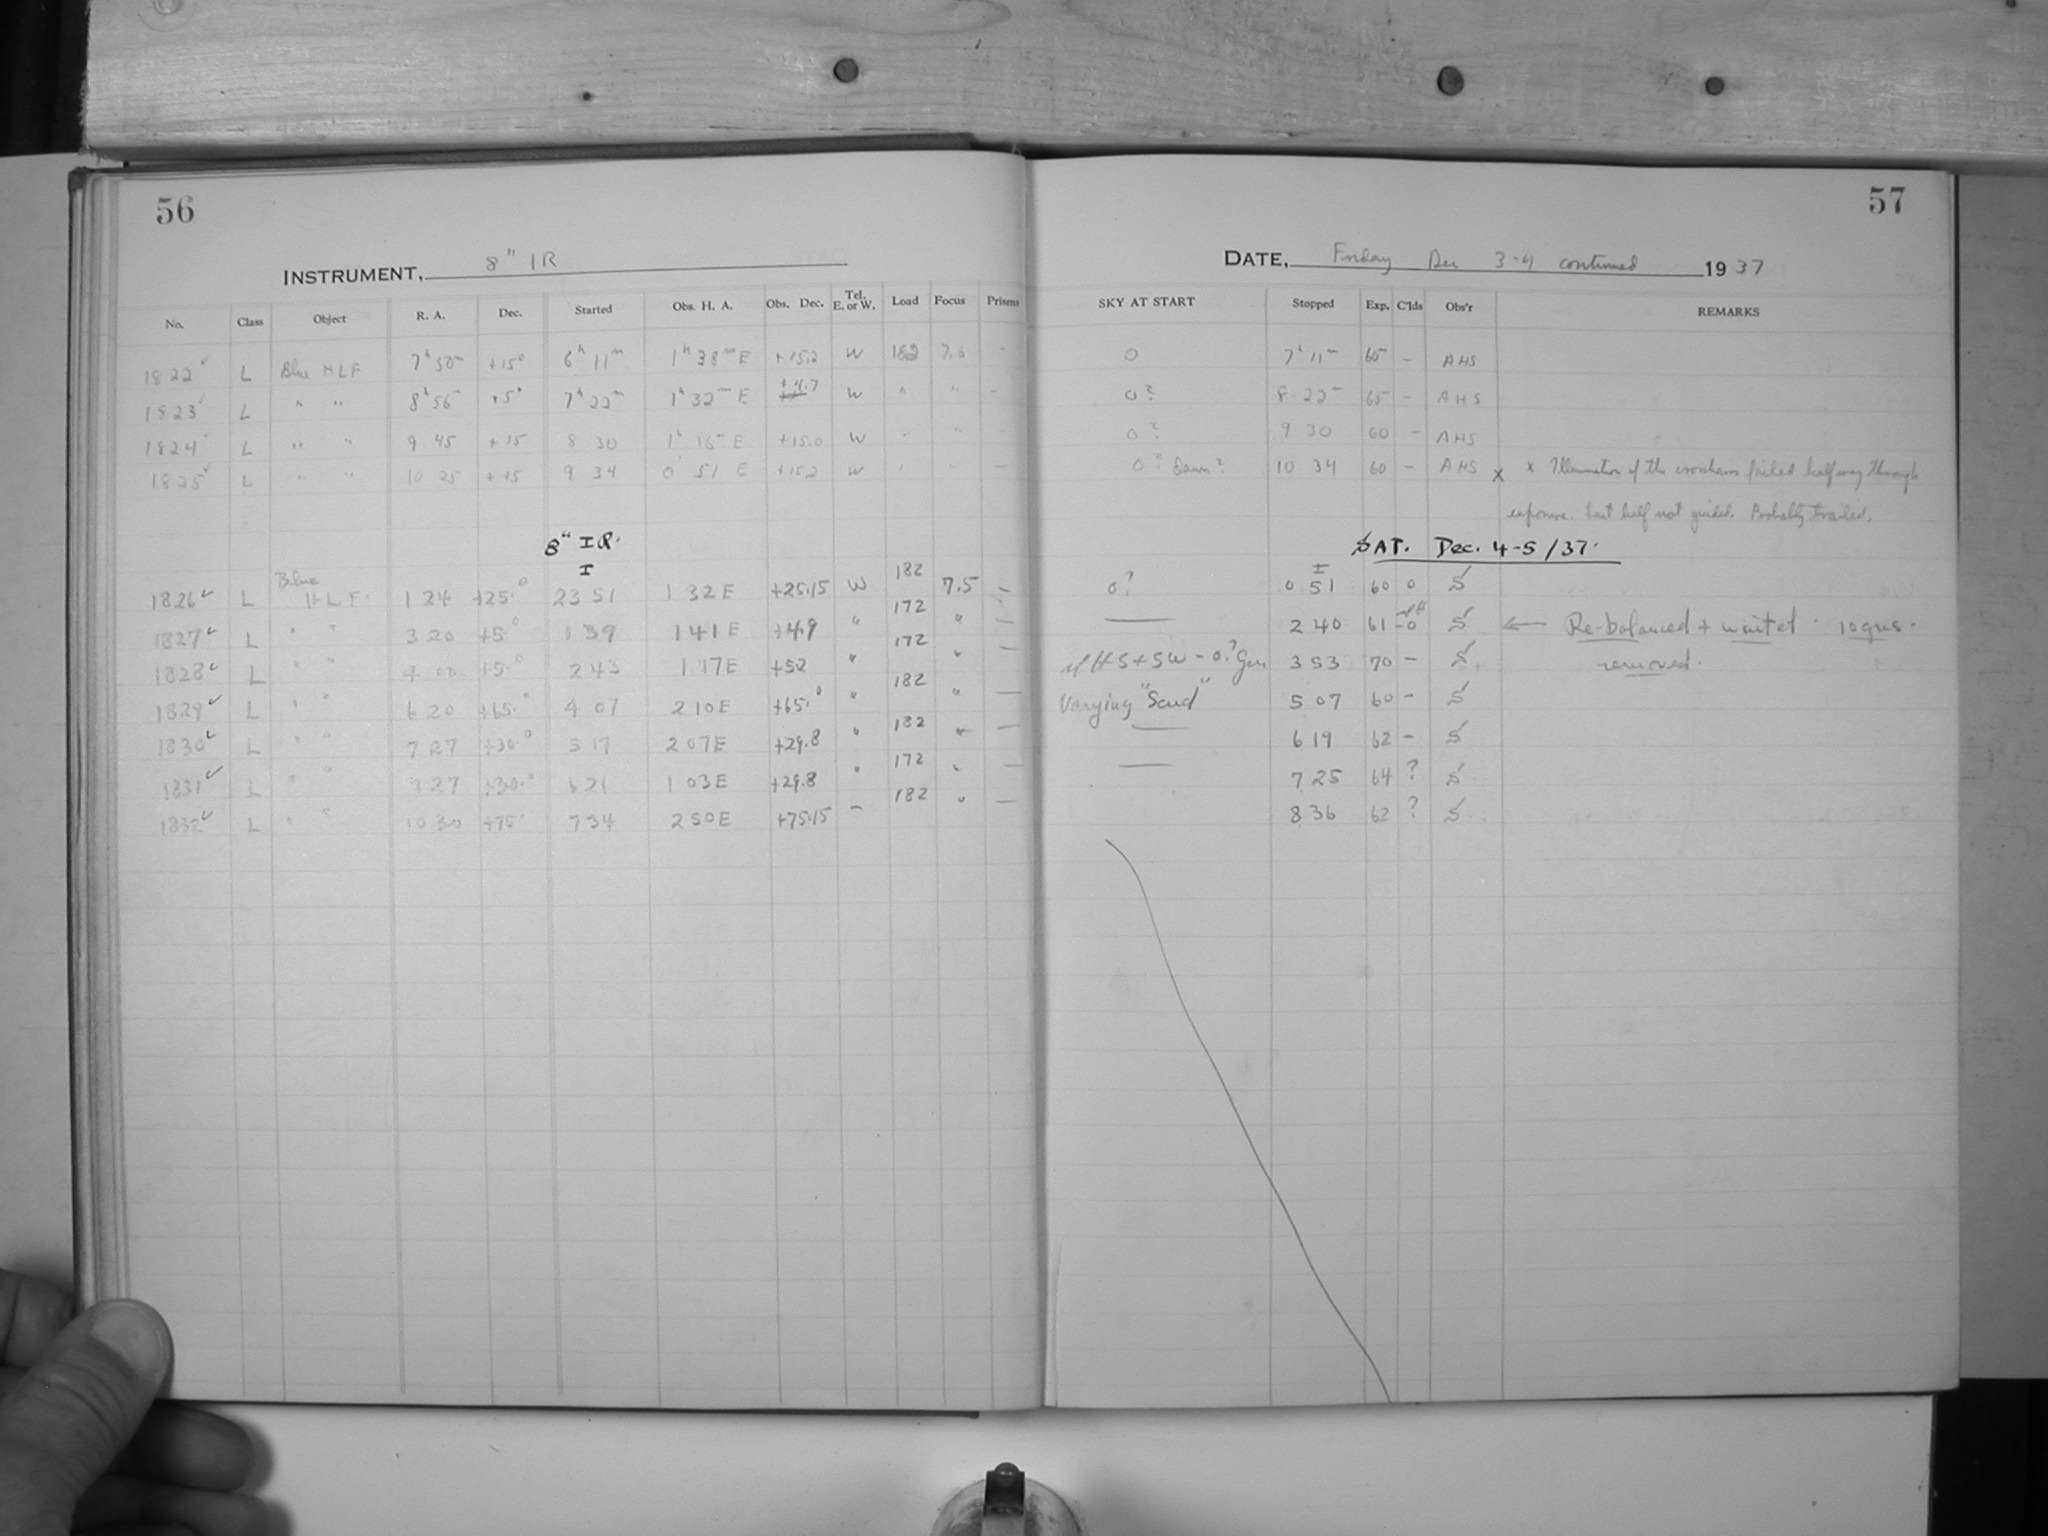 56
INSTRUMENT, 8" IR
No. Class Object R. A. Dec. Started Obs. H. A. Obs. Dec. Tel. E. or W. Load Focus Prisms
1822 ✓ L Blue HLF 7h 50m +15° 6h 11m 1h 38m E +15.2 W 182 7.5 -
1823 ✓ L " " 8h 56m +5° 7h 22m 1h 32m E +4.7 W " " -
1824 L " " 9 45 +15 8 30 1h 15m E +15.0 W " " -
1825 ✓ L " " 10 25 +15 9 34 0 51 E +15.2 W " " -
8" I R.
I
1826 ✓ L Blue HLF. 1 24 +25.° 23 51 1 32 E +25.15 W 182 7.5 -
1827 ✓ L " " 3 20 +5.° 1 39 1 41 E +4.9 " 172 " -
1828 ✓ L " " 4 00 +5.° 2 43 1 17 E +5.2 " 172 " -
1829 ✓ L " " 6 20 +65.° 4 07 2 10 E +65.° " 182 " -
1830 ✓ L " " 7 27 +30.° 5 17 2 07 E +29.8 " 182 " -
1831 ✓ L " " 7 27 +30.° 6 21 1 03 E +29.8 " 172 " -
1832 ✓ L " " 10 30 +75° 7 34 2 50 E +75.15 - 182 " -
57
DATE, Friday Dec 3-4 continued 1937
SKY AT START Stopped Exp. C'lds Obs'r REMARKS
0 7h 11m 60m - AHS
0? 8 22m 60m - AHS
0? 9 30 60 - AHS
0? Dawn? 10 34 60 - AHS x x Illumination of the crosshairs failed halfway through
exposure. Last half not guided. Probably trailed.
SAT. Dec. 4-5/37.
I
0? 0 51 60 0 S
— 2 40 61 -0 S ← Re-balanced + waited. 10 gms.
H S + SW - 0.? Gen 3 53 70 - S removed.
Varying "Scud" 5 07 60 - S
— 6 19 62 - S
— 7 25 64 ? S
8 36 62 ? S